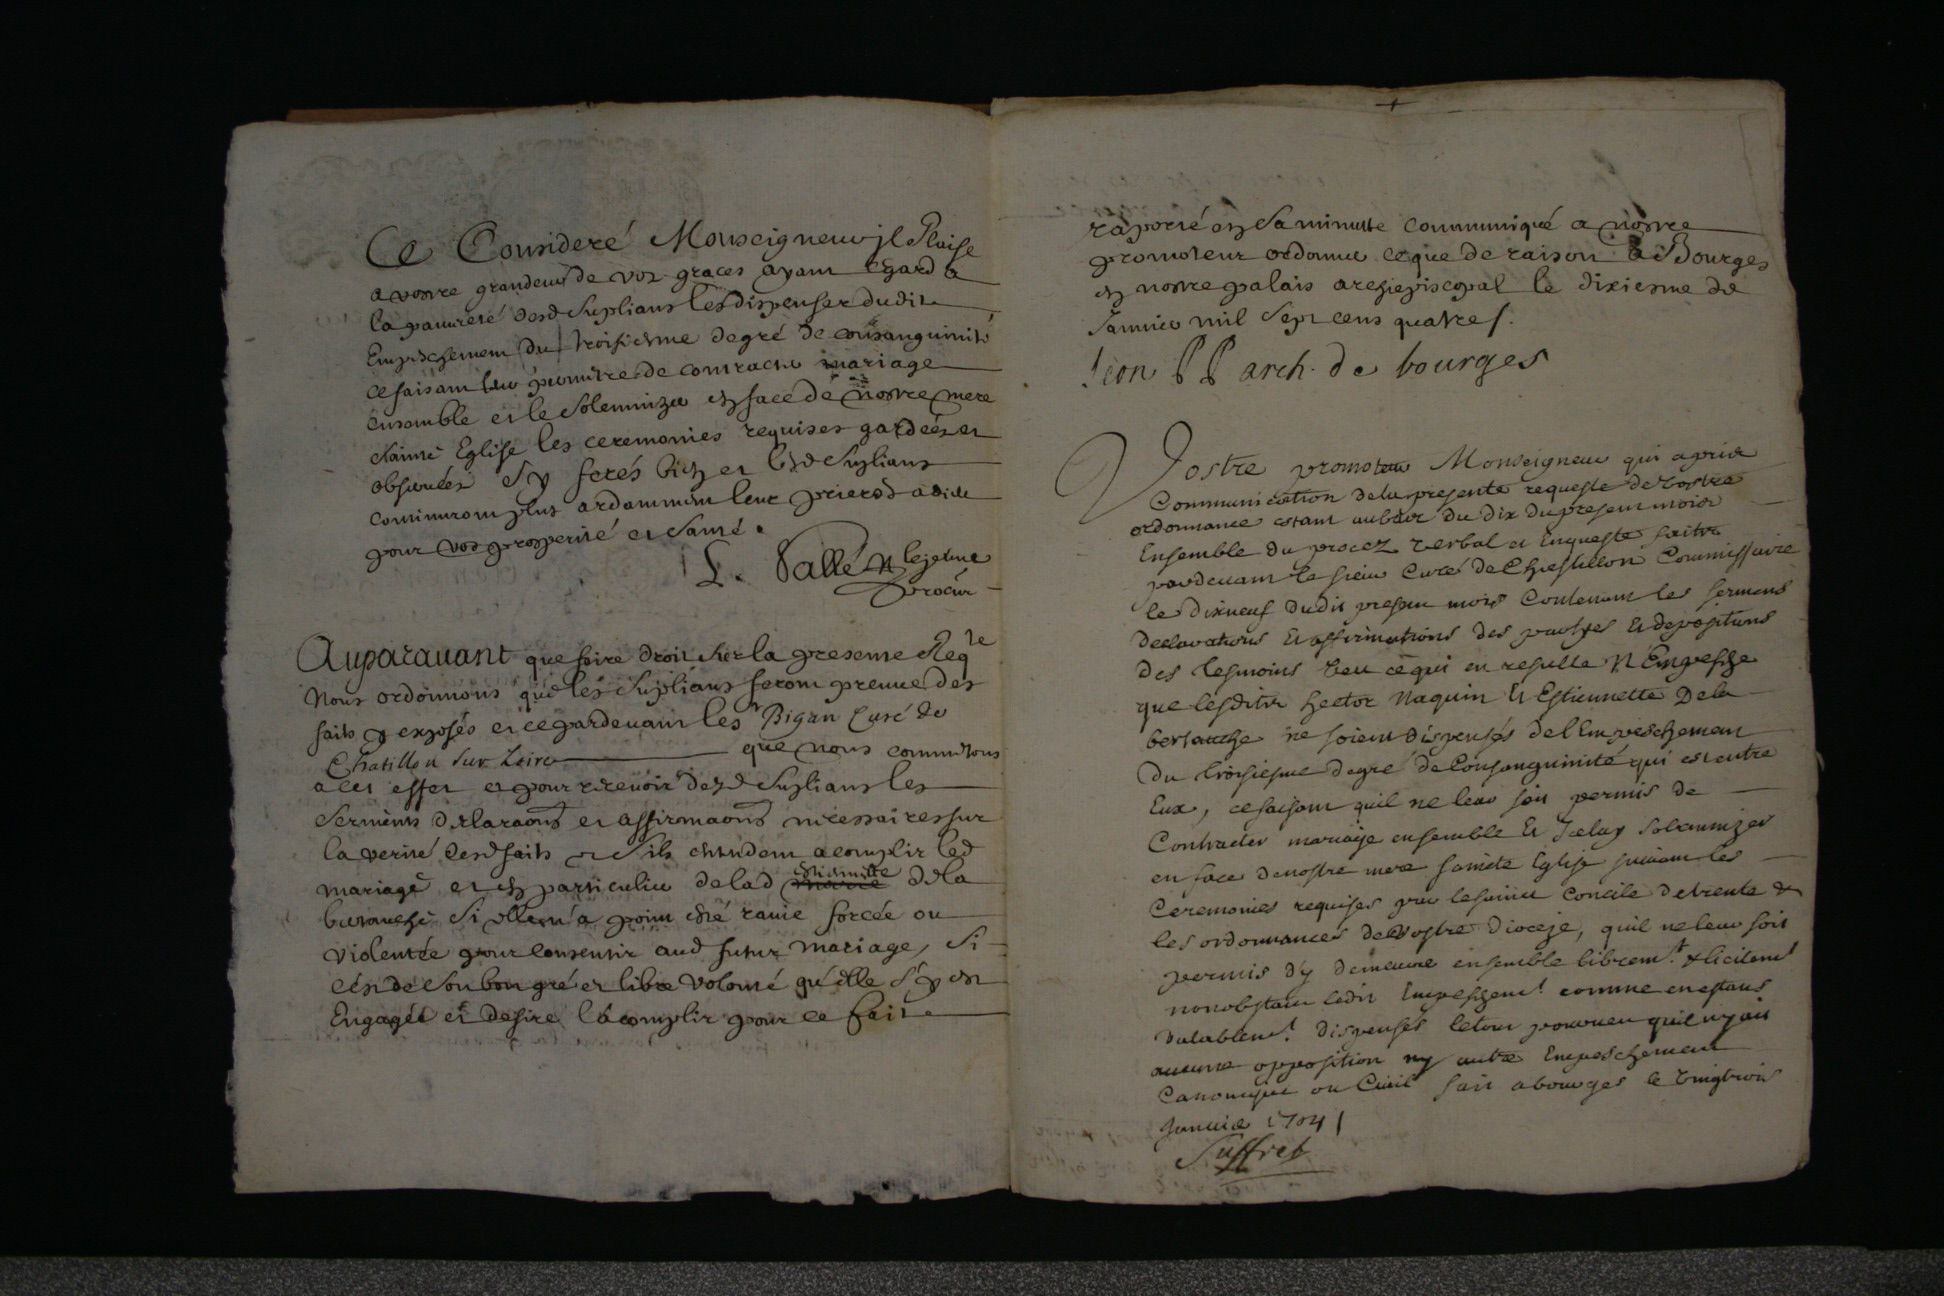 Ce Consideré Monseigneur jl Plaise
a vostre grandeur de vos graces ayant egard a
la pauvreté desd supliants les dispenser dudit
Empeschement du troisiesme degré de consanguinité
ce faisant leur permettre de contracter mariage
ensemble et le solemnizer en face de nostre mere
sainte Eglise les ceremonies requises gardées et
observées sy ferés bien et lesd supliants
continuront plus ardamment leur prieres a dieu
pour vos prosperité et santé.
L. Vallée lejeune
procur
Auparavant que faire droit sur la presente Reqte
Nous ordonnons que les supliants feront preuve des
faits y exposés et ce pardevant le sr Bigan Curé de
Chatillon sur Loire que nous commettons
a cet effet et pour recevoir desd supliants les
serments declaraons et affirmaons necessaires sur
la verité desd faits et sils entendent acomplir led
mariage et en particulier de lad Estiennette marie dela
bertauche si elle n'a point esté ravie forcée ou
violentée pour consentir aud futur mariage, si
cest de son bon gré et libre volonté qu'elle s'y est
Engagée et desire l'acomplir pour ce fait
raporté en sa minutte communiqué a nostre
promoteur ordonner ce que de raison a Bourges
en nostre palais archiepiscopal le dixiesme de
Janvier mil sept cens quatre
leon PP arch. de bourges
Vostre promoteur Monseigneur qui a pris
Communication de la presente requeste de vostre
ordonnance estant aubas du dix du present mois
Ensemble du procez verbal et Enqueste faitte
pardevant le sieur Curé de Chastillon Commissaire
le dixneuf dudit present mois Contenant les sermens
declarations et affirmations des parties et depositions
des tesmoins veu ce qui en resulte N'Empesche
que lesdits hector Naquin et Estiennette Dela
bertauche ne soient dispensés de l'Empeschement
du troisiesme degré de Consanguinité qui est entre
Eux, ce faisant quil ne leur soit permis de
Contracter mariage ensemble et Jceluy solemnizer
en face de nostre mere saincte Eglise suivant les
Ceremonies requises par le saint Concile de trente &
les ordonnances de vostre diocese, quil ne leur soit
permis d'y demeurer ensemble librement & licitemt
nonobstant ledit Empeschemt comme en estans
valablemt dispensés letout pourveu quil ny ait
aucune opposition ny autre Empeschement
Canonique ou Civil fait a bourges le vingtrois
Janvier 1704
Suffret